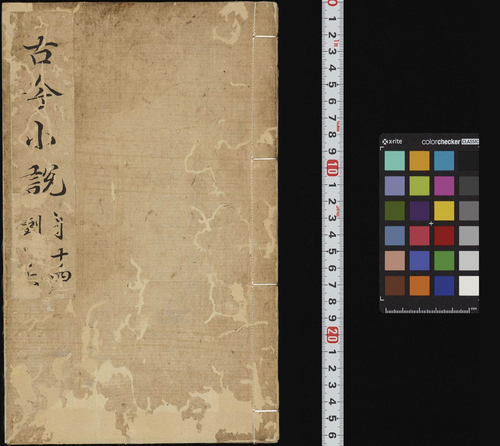 古今小說
十四
劉
0
1
2
3
4
5
6
7
8
9
10
1
2
3
4
5
6
7
8
9
20
1
2
3
4
5
6
x-rite
colorchecker CLASSIC